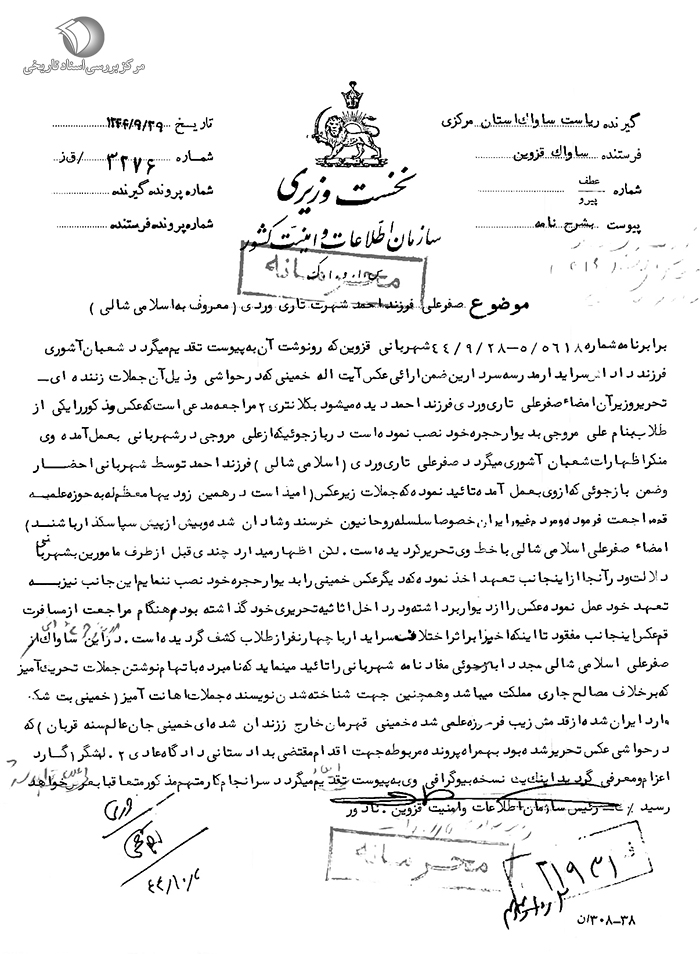 مرکز بررسی اسناد تاریخی
گیرنده ریاست ساواک استان مرکزی
فرستنده ساواک قزوین
شماره عطف پیرو
پیوست بشرح نامه
نخست وزیری
سازمان اطلاعات و امنیت کشور
تاریخ ۱۳۴۴/۹/۲۹
شماره ۳۲۷۶ /ق ز
شماره پرونده گیرنده
شماره پرونده فرستنده
محرمانه
موضوع صفرعلی فرزند احمد شهرت تاری وردی ( معروف به اسلامی شالی )
برابرنامه شماره ۵/۵۶۱۸-۴۴/۹/۲۸ شهربانی قزوین که رونوشت آن به پیوست تقدیم میگردد شعبان آشوری
فرزند داداش سرایدار مدرسه سردارین ضمن ارائی عکس آیت اله خمینی که در حواشی و ذیل آن جملات زننده ای
تحریر و زیر آن امضاء صفرعلی تاری وردی فرزند احمد دیده میشود بکلانتری ۲ مراجعه مدعی است که عکس مذکور را یکی از
طلاب بنام علی مروجی بدیوار حجره خود نصب نموده است در بازجوئیکه از علی مروجی در شهربانی بعمل آمده وی
منکر اظهارات شعبان آشوری میگردد صفرعلی تاری وردی ( اسلامی شالی ) فرزند احمد توسط شهربانی احضار
وضمن بازجوئی که از وی بعمل آمده تائید نموده که جملات زیر عکس ( امید است در همین زودیها معظم له به حوزه علمیه
قم مراجعت فرموده و مردم غیور ایران خصوصا سلسله روحانیون خرسند و شادان شده و بیش از پیش سپاسگذار باشند )
امضاء صفرعلی اسلامی شالی با خط وی تحریر گردیده است . لکن اظهار میدارد چندی قبل از طرف مامورین بشهربانی
دلالت و در آنجا از اینجانب تعهد اخذ نموده که دیگر عکس خمینی را بدیوار حجره خود نصب ننمایم این جانب نیز به
تعهد خود عمل نموده عکس را از دیوار برداشته و در داخل اثاثیه تحریری خود گذاشته بودم هنگام مراجعت از مسافرت
قم عکس اینجانب مفقود تا اینکه اخیرا بر اثر اختلاف سرایدار با چهار نفر از طلاب کشف گردیده است . در این ساواک از
صفرعلی اسلامی شالی مجددا بازجوئی مفاد نامه شهربانی را تائید مینماید که نامبرده باتهام نوشتن جملات تحریک آمیز
که برخلاف مصالح جاری مملکت میباشد وهمچنین جهت شناخته شدن نویسنده جملات اهانت آمیز ( خمینی بت شکن
وارد ایران شده از قدمش زیب فر حوزه علمی شده خمینی قهرمان خارج ززندان شده ای خمینی جان عالم سنه قربان ) که
در حواشی عکس تحریر شده بود بهمراه پرونده مربوطه جهت اقدام مقتضی بدادستانی دادگاه عادی ۲. لشگر ۱ گارد
اعزام و معرفی گردید اینک یک نسخه بیوگرافی وی به پیوست ایفاد میگردد سرانجام کار متهم مذکور متعاقبا بعرض خواهد
رسید ٪ ث- رئیس سازمان اطلاعات و امنیت قزوین . نادور
محرمانه
۴۴/۱۰/۲
۲۱۹۳۱
۳۸-۳۰۸/ن